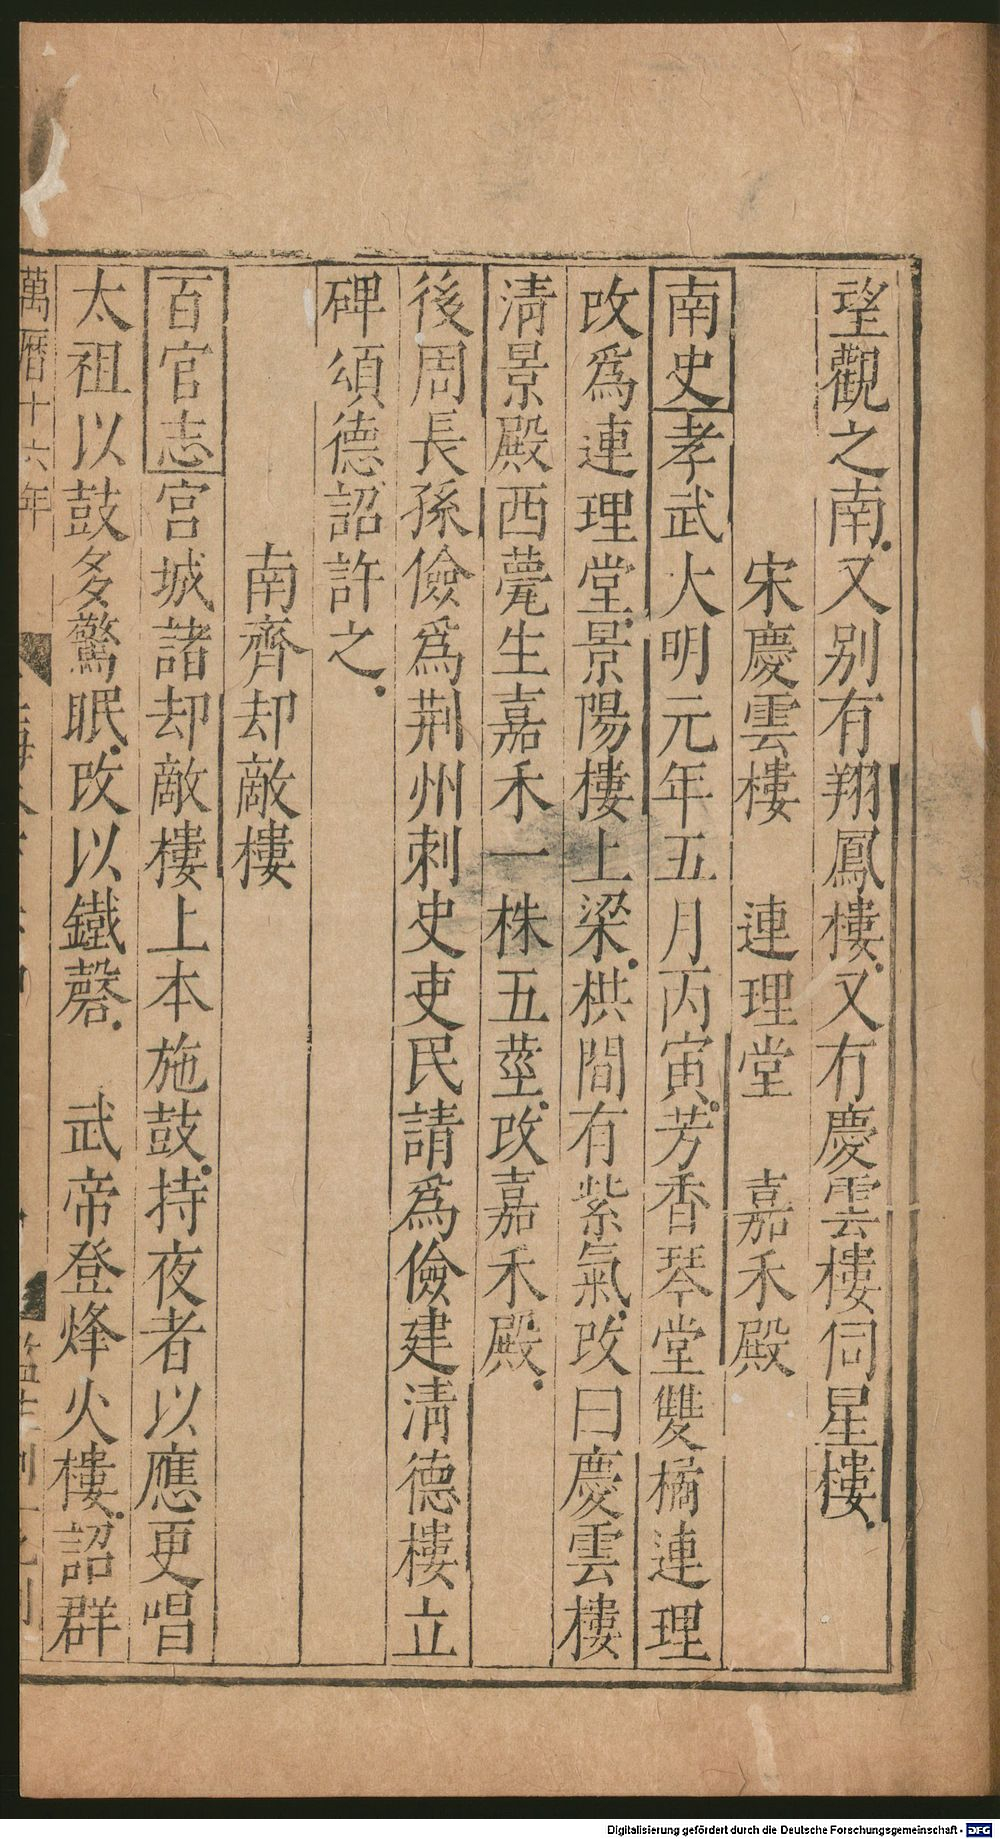 望觀之南又别有翔鳳樓又有慶雲樓伺星樓
宋慶雲樓 連理堂 嘉禾殿
南史孝武大明元年五月丙寅芳香琴堂雙橘連理
改爲連理堂景陽樓上梁栱間有紫氣改曰慶雲樓
清景殿西甍生嘉禾一株五莖改嘉禾殿
後周長孫儉爲荆州刺史吏民請爲儉建清德樓立
碑頌德詔許之
南齊却敵樓
百官志宫城諸却敵樓上本施鼓持夜者以應更唱
太祖以鼓多驚眠改以鐵磬 武帝登烽火樓詔群
萬曆十六年
Digitalisierung gefördert durch die Deutsche Forschungsgemeinschaft - DFG